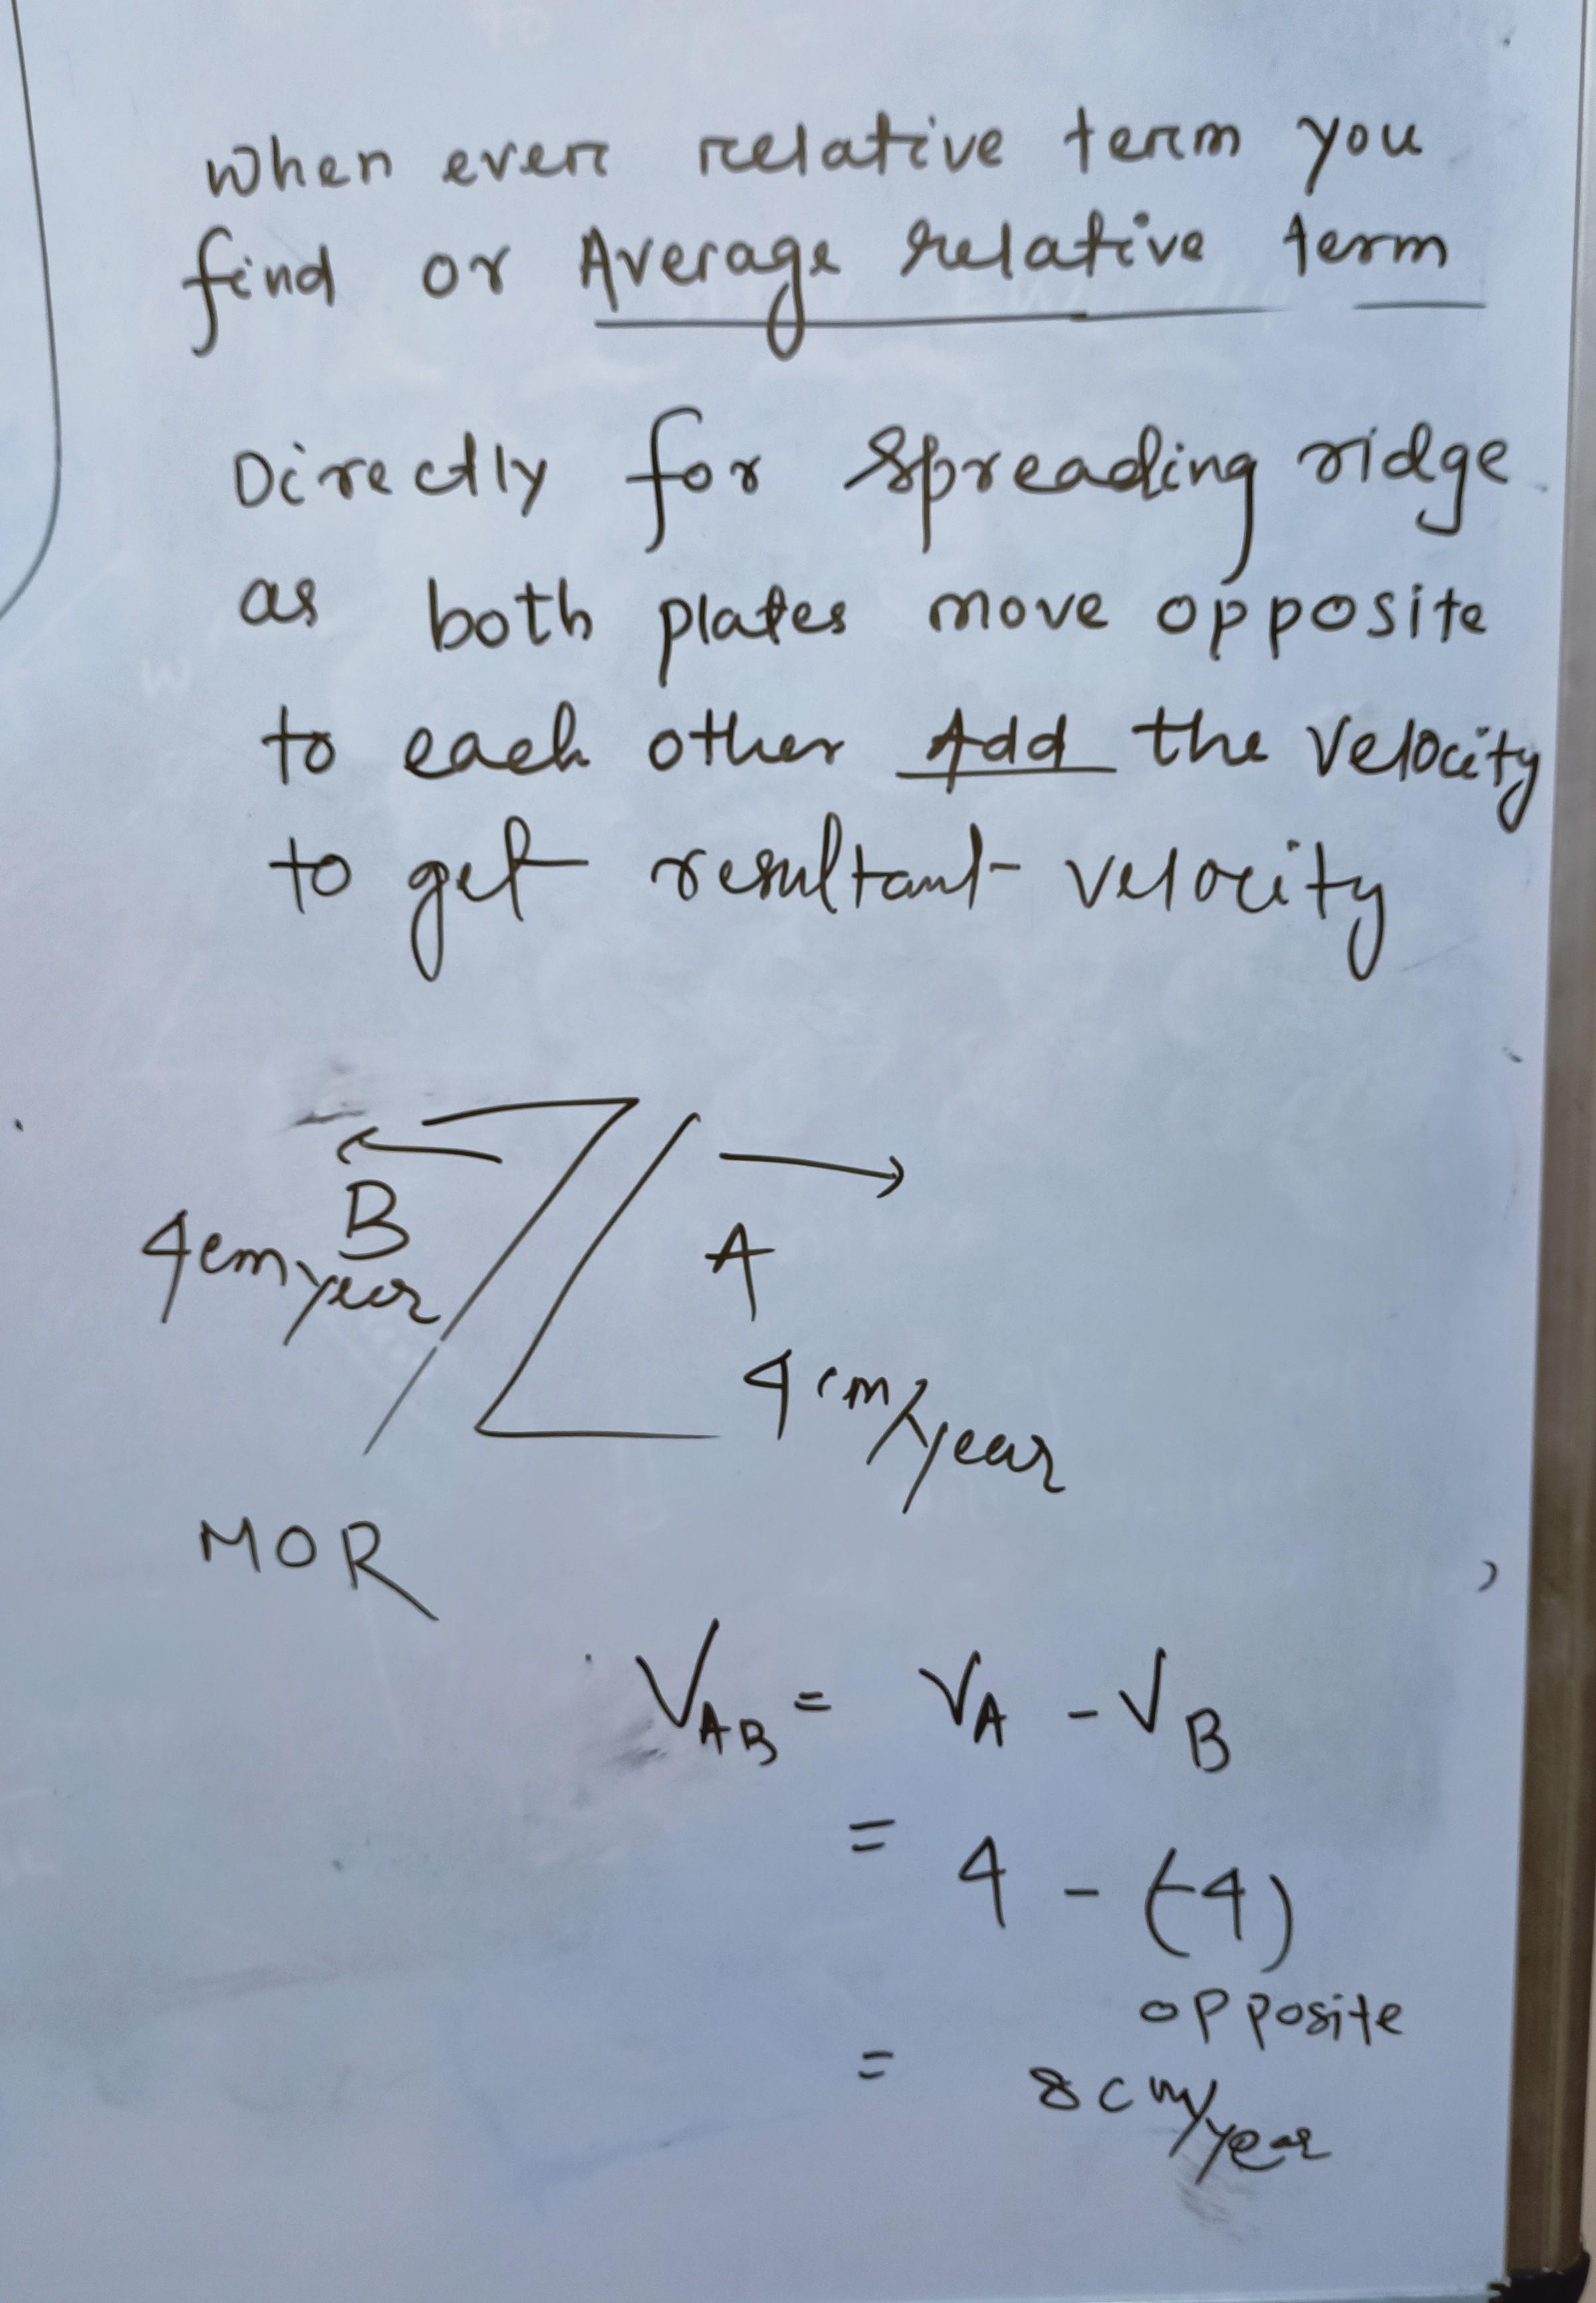 when ever relative term you
find or Average relative term
Directly for spreading ridge
as both plates move opposite
to each other Add the velocity
to get resultant velocity
B
4cm/year
A
4cm/year
MOR
VAB = VA - VB
= 4 - (-4)
opposite
= 8cm/year